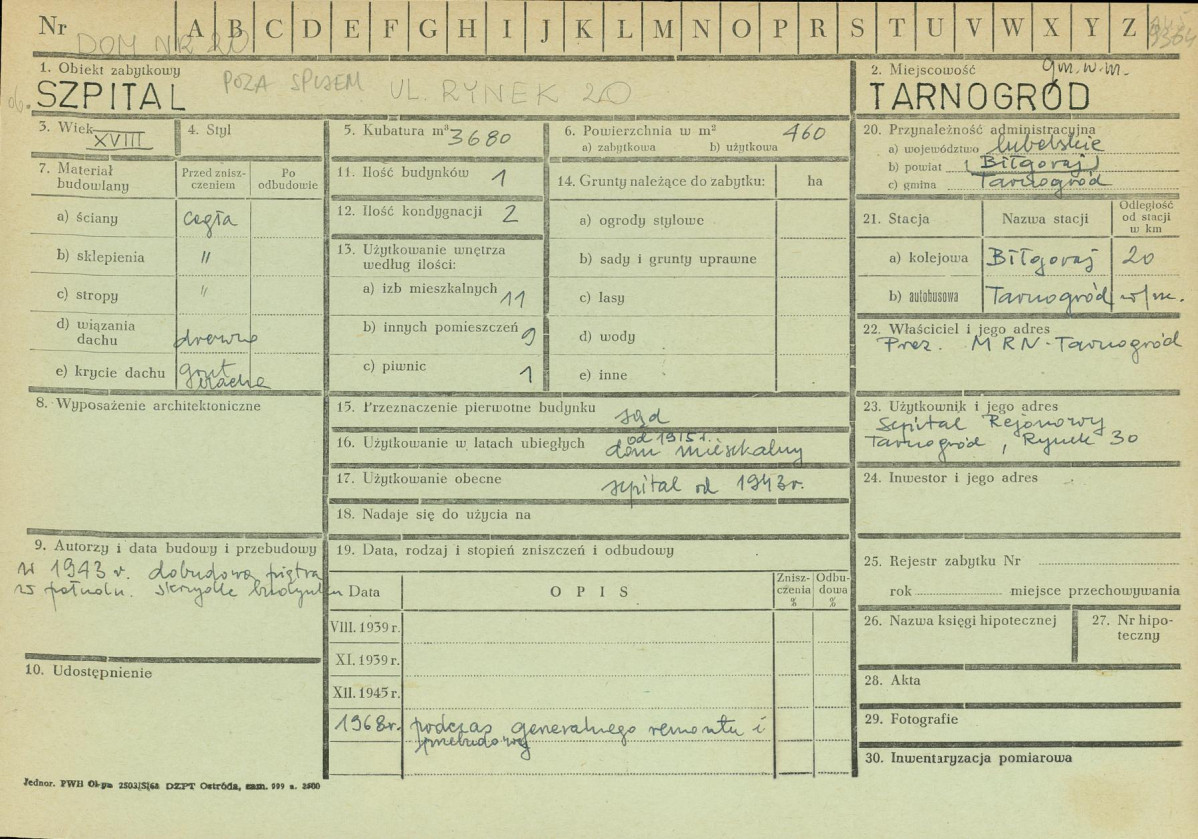 Nr A B C D E F G H I J K L M N O P R S T U V W X Y Z
DOM NR 20
1. Obiekt zabytkowy
SZPITAL
POZA SPISEM UL. RYNEK 20
2. Miejscowość gm. w.m.
TARNOGRÓD
3. Wiek XVIII
4. Styl
5. Kubatura m³ 3680
6. Powierzchnia w m² 460
a) zabytkowa b) użytkowa
7. Materiał budowlany
Przed zniszczeniem
Po odbudowie
a) ściany cegła
b) sklepienia "
c) stropy "
d) wiązania dachu drewno
e) krycie dachu gont blacha
8. Wyposażenie architektoniczne
9. Autorzy i data budowy i przebudowy
W 1943 r. dobudowa piętra
w połudn. skrzydle budynku
10. Udostępnienie
11. Ilość budynków 1
12. Ilość kondygnacji 2
13. Użytkowanie wnętrza według ilości:
a) izb mieszkalnych 11
b) innych pomieszczeń 9
c) piwnic 1
14. Grunty należące do zabytku: ha
a) ogrody stylowe
b) sady i grunty uprawne
c) lasy
d) wody
e) inne
15. Przeznaczenie pierwotne budynku sąd
16. Użytkowanie w latach ubiegłych od 1915 r. dom mieszkalny
17. Użytkowanie obecne szpital od 1943 r.
18. Nadaje się do użycia na
19. Data, rodzaj i stopień zniszczeń i odbudowy
Data
OPIS
Zniszczenia %
Odbudowa %
VIII. 1939 r.
XI. 1939 r.
XII. 1945 r.
1968 r. podczas generalnego remontu i
przebudowy
20. Przynależność administracyjna
a) województwo lubelskie
b) powiat (Biłgoraj)
c) gmina Tarnogród
21. Stacja
Nazwa stacji
Odległość od stacji w km
a) kolejowa Biłgoraj 20
b) autobusowa Tarnogród w/m.
22. Właściciel i jego adres
Prez. MRN-Tarnogród
23. Użytkownik i jego adres
Szpital Rejonowy
Tarnogród, Rynek 30
24. Inwestor i jego adres
25. Rejestr zabytku Nr
rok miejsce przechowywania
26. Nazwa księgi hipotecznej
27. Nr hipoteczny
28. Akta
29. Fotografie
30. Inwentaryzacja pomiarowa
Jednor. PWH 2503/S/68 DZPT Ostróda, zam. 999 n. 3500